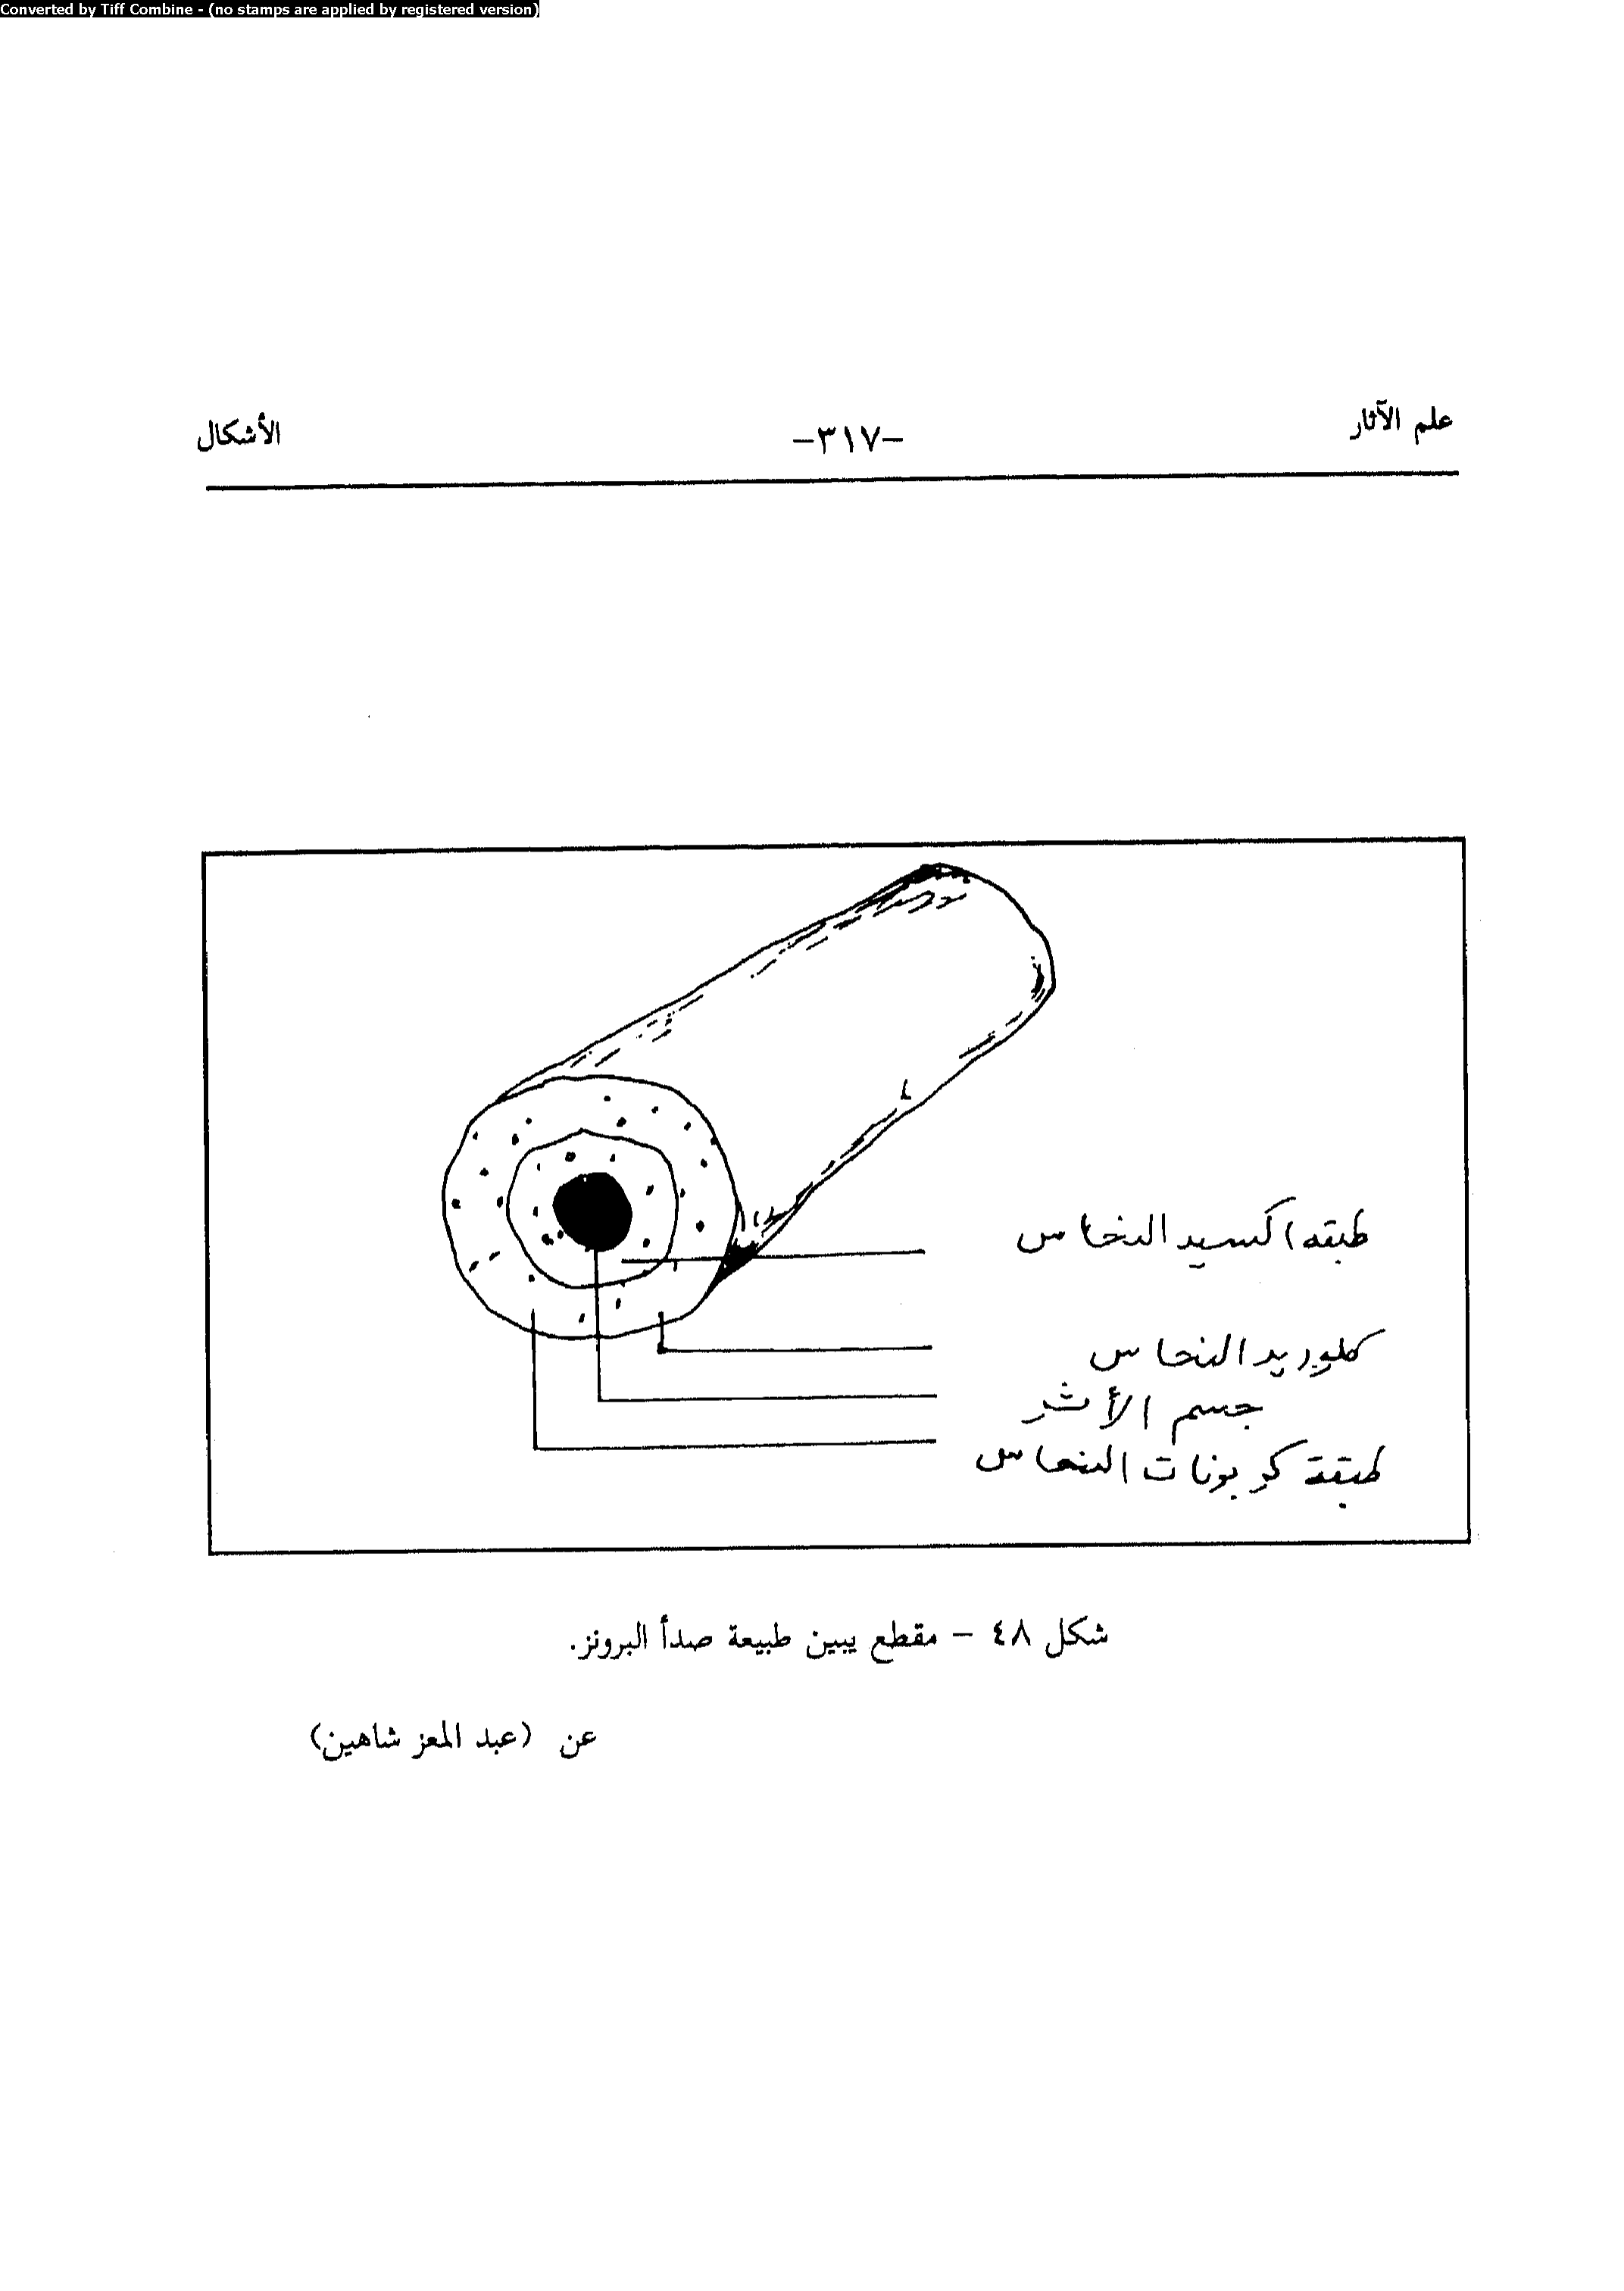 Converted by Tiff Combine - (no stamps are applied by registered version)
علم الآثار -٣١٧- الأشكال
طبقه اكسيد النحاس
كلوريد النحاس
جسم الأثر
طبقة كربونات النحاس
شكل ٤٨ – مقطع يبين طبيعة صدأ البرونز.
عن (عبد المعز شاهين)